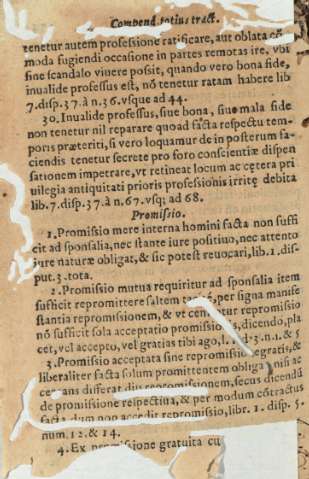 Compend. totius tract.
tenetur autem professione ratificare, aut oblata cõ
moda fugiendi occasione in partes remotas ire, vbi
sine scandalo viuere possit, quando vero bona fide,
inualide professus est, nõ tenetur ratam habere lib
7.disp.37.à n.36.vsque ad 44.
30.Inualide professus, siue bona, siue mala fide
non tenetur nil reparare quoad facta respectu tem-
poris præteriti, si vero loquamur de in posterum fa-
ciendis tenetur secrete pro foro conscientiæ dispen
sationem impetrare, vt retineat locum ac cętera pri
uilegia antiquitati prioris professionis irritę debita
lib.7.disp.37.à n.67.vsq; ad 68.
Promissio.
1.Promissio mere interna homini facta non suffi
cit ad sponsalia, nec stante iure positiuo, nec attento
iure naturæ obligat, & sic potest reuocari, lib.1.dis-
put.3.tota.
2.Promissio mutua requiritur ad sponsalia item
sufficit repromittere saltem per signa manife
stantia repromissionem, & vt censetur repromissio
nõ sufficit sola acceptatio promissio dicendo, pla
cet, vel accepto, vel gratias tibi ago, l. 3.n.1. & 5
3.Promissio acceptata sine repromissione gratis, &
liberaliter facta solum promittentem obliga nisi ac
differat repromissionem, secus dicendũ
de promissione respectiua, & per modum cõtractus
facta dum non accedit repromissio, libr. 1. disp. 5.
num.12.& 14.
4.Ex promissione gratuita cu